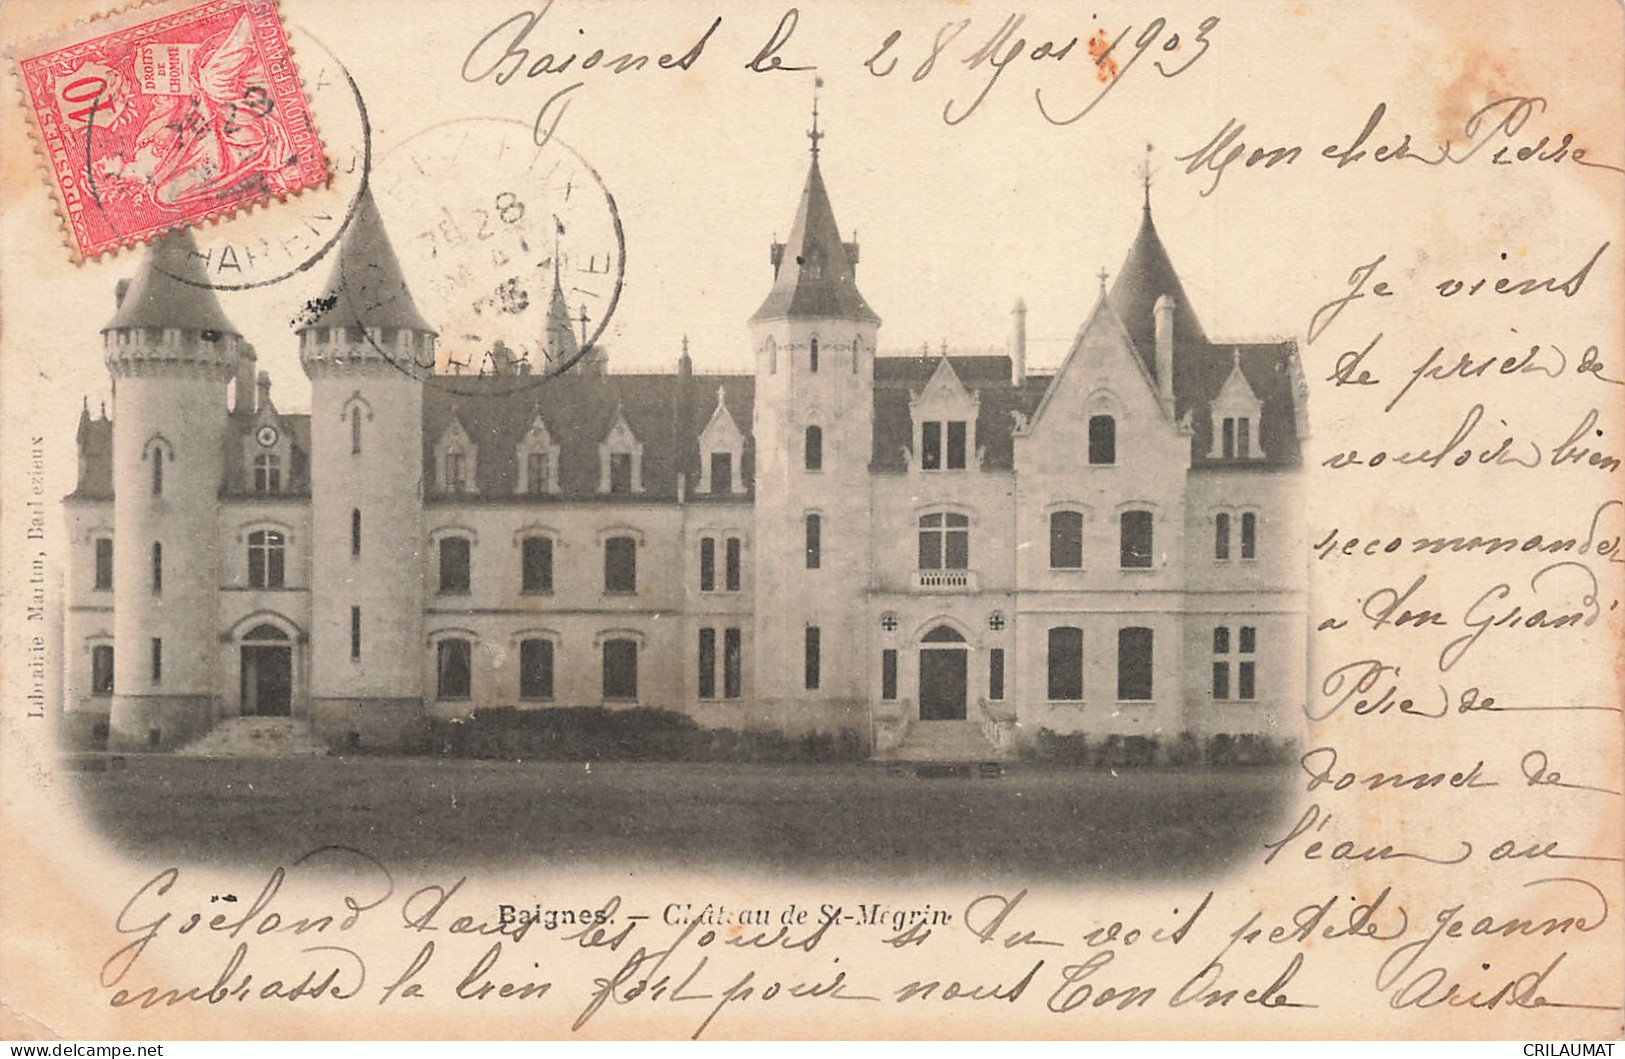 Baignes le 28 Mai 1903
POSTES 10
DROITS DE L'HOMME
REPUBLIQUE FRANCAISE
28
CHARENTE
28
MAI
CHARENTE
Mon cher Pierre
Je viens
te prier de
vouloir bien
recommander
a ton Grand
Père de
donner de
l'eau au
Goëland tous les jours si tu voit petite Jeanne
embrasse la bien fort pour nous Ton Oncle Ariste
Baignes. — Château de St-Mégrin
Librairie Martin, Barbezieux
CRILAUMAT